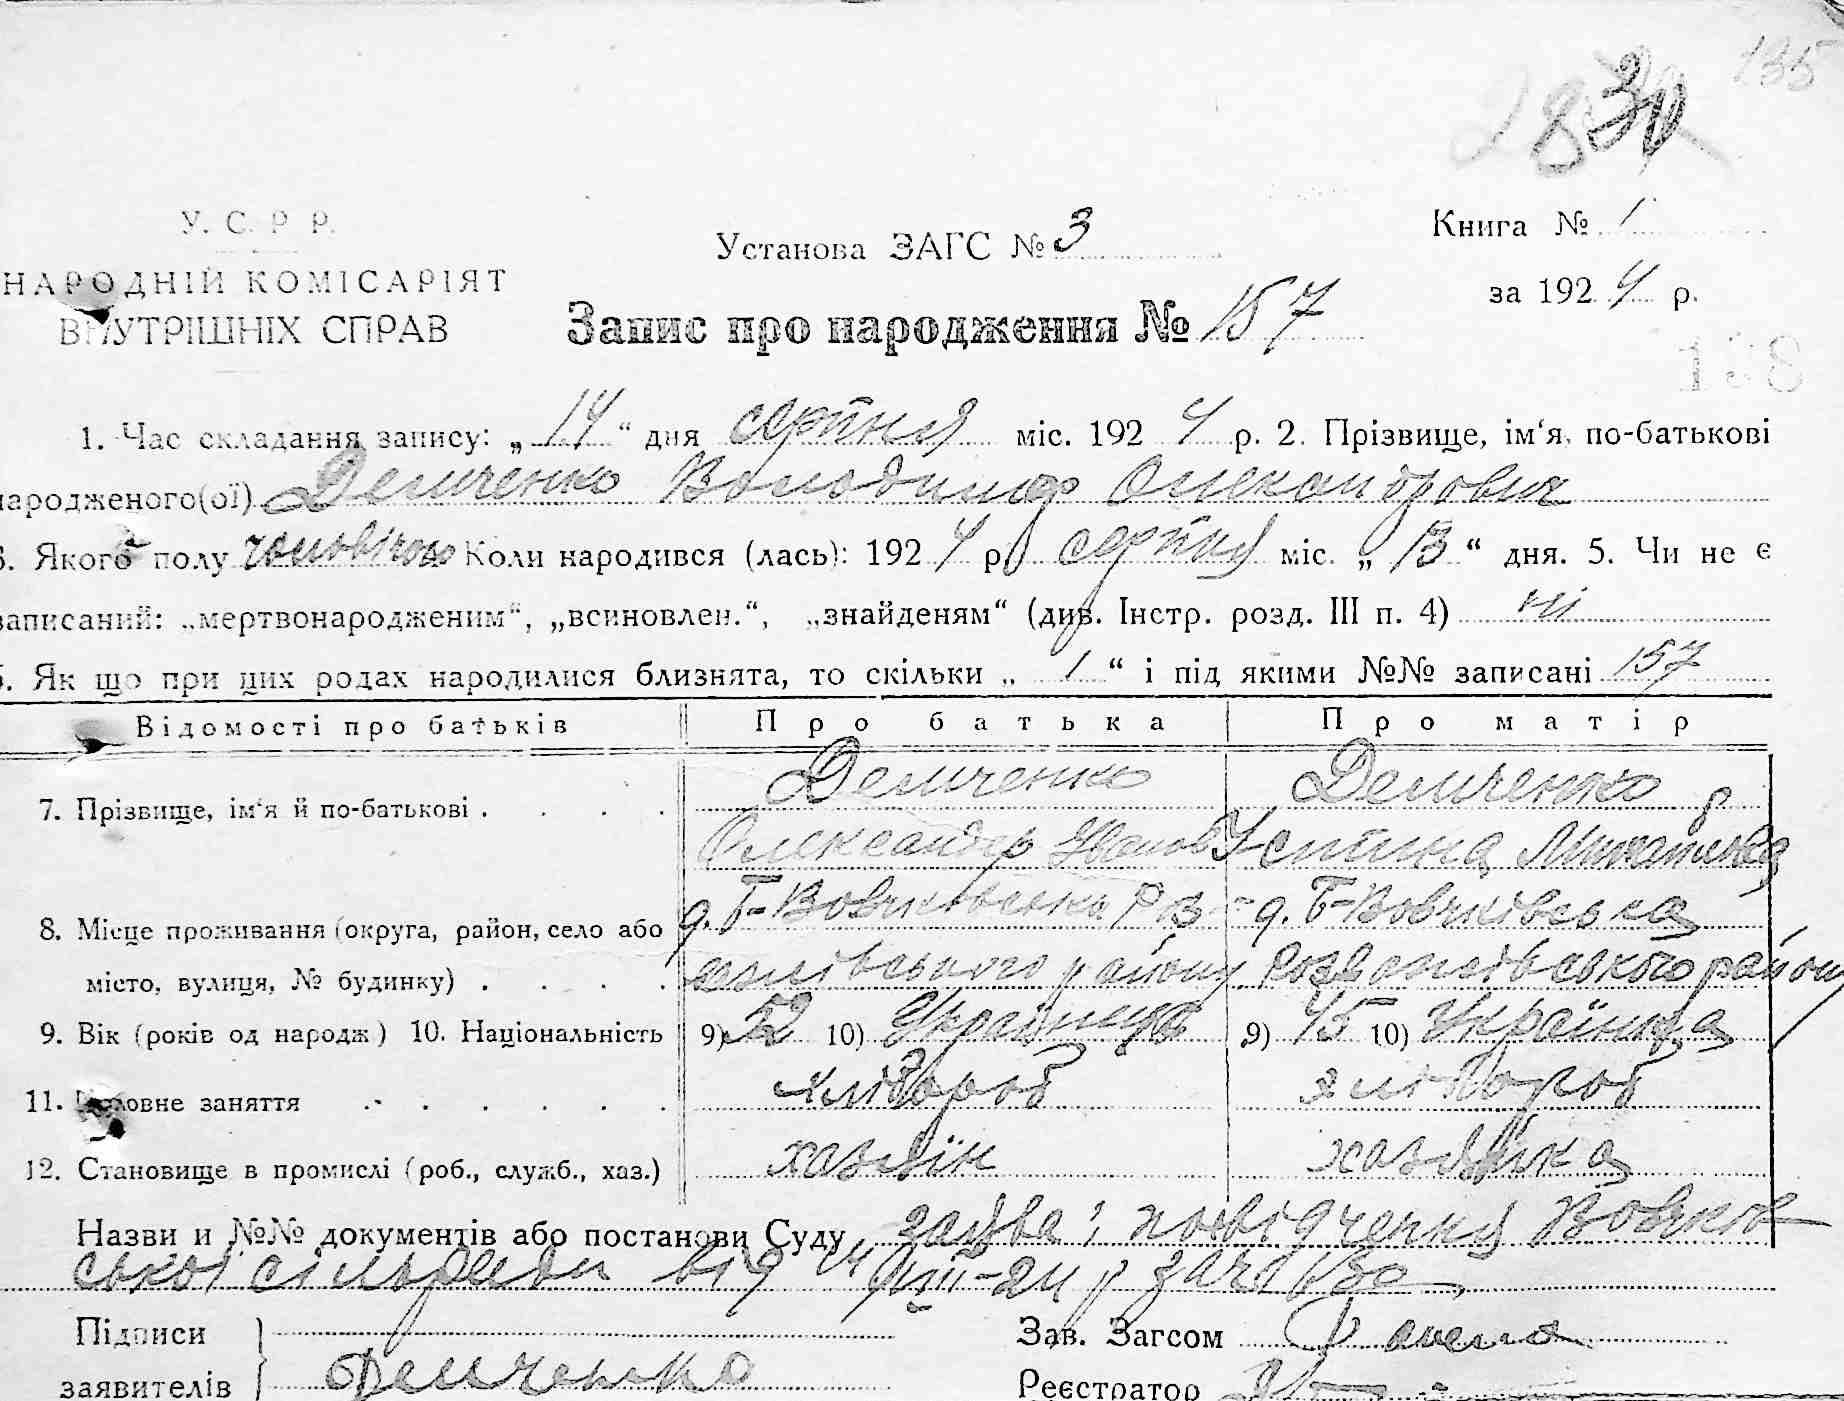 135
28 30
У. С. Р. Р.
НАРОДНІЙ КОМІСАРІЯТ
ВНУТРІШНІХ СПРАВ
Установа ЗАГС № 3
Книга № 1
за 1924 р.
Запис про народження № 157
138
1. Час складання запису: „14“ дня серпня міс. 1924 р. 2. Прізвище, ім‘я, по-батькові
народженого(ої) Демченко Володимир Олександрович
3. Якого полу чоловічого Коли народився (лась): 1924 р. серпня міс. „13“ дня. 5. Чи не є
записаний: „мертвонародженим“, „всиновлен.“, „знайденям“ (див. Інстр. розд. III п. 4) ні
6. Як що при цих родах народилися близнята, то скільки „1“ і під якими №№ записані 157
Відомості про батьків Про батька Про матір
7. Прізвище, ім‘я й по-батькові . . . . Демченко Демченко
Олександр Іванов Устина Михайлівна
8. Місце проживання (округа, район, село або д. Б-Вовчківська Роз- д. Б-Вовчківська
місто, вулиця, № будинку) . . . . району Розважівського району
9. Вік (років од народж.) 10. Національність 9) 52 10) Українець 9) 45 10) Українка
11. Головне заняття . . . . . . хлібороб хлібороб
12. Становище в промислі (роб., служб., хаз.) хазяїн хазяйка
Назви и №№ документів або постанови Суду заява і посвідчення Вовчків
ської сільради від 14/VIII-24 р за ч
Підписи
заявителів Демченко
Зав. Загсом
Реєстратор